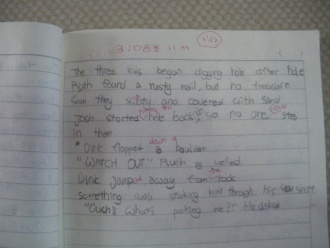 The three kids began digging hole after hole
Ruth found a rusty nail, but no treasure
Soon they and covered with sand
Josh started hole back, so no one step
in them
Dink flopped down boulder
"WATCH OUT" Ruth yelled
Dink jumped away from the rock
Something was sticking him through his shirt
"Ouch! What's poking me?!" He asked